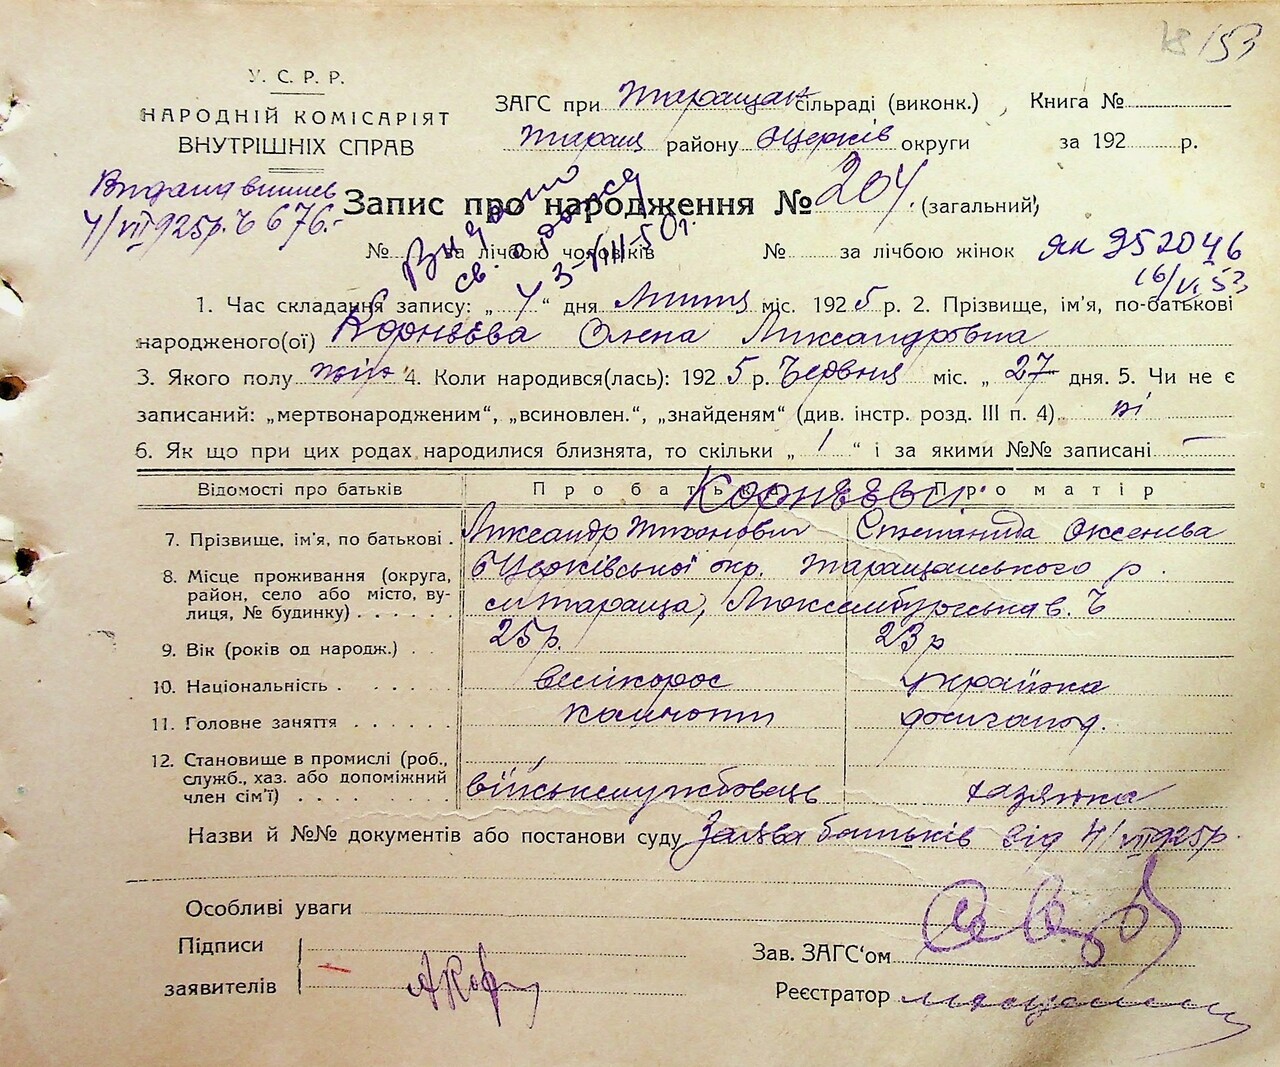 153
У. С. Р. Р.
НАРОДНІЙ КОМІСАРІЯТ
ВНУТРІШНІХ СПРАВ
ЗАГС при Таращан сільраді (виконк.) Книга №
Таращ району Бцерків округи за 192 р.
Видана виписъ
4/VII 925р. Ч 676.-
Запис про народження № 204. (загальний)
Видано
св. о рожд
3-VIII-50г.
№ за лічбою чоловіків № за лічбою жінок
ЯК 252046
16/VI 53
1. Час складання запису: „4“ дня Липня міс. 1925 р. 2. Прізвище, ім'я, по-батькові
народженого(ої) Корнєєва Олена Олександрівна
3. Якого полу жін. 4. Коли народився(лась): 1925 р. Червня міс. „27 дня. 5. Чи не є
записаний: „мертвонародженим“, „всиновлен.“, „знайденям“ (див. інстр. розд. III п. 4) ні
6. Як що при цих родах народилися близнята, то скільки „1“ і за якими №№ записані —
Відомості про батьків Про батька Про матір
Корнєєви.
7. Прізвище, ім'я, по батькові Олександр Тихонович Степанида Оксенєва
8. Місце проживання (округа, район, село або місто, вулиця, № будинку) Бцерківської окр. Таращанського р.
м Тараща, Люксембургська в. Ч
9. Вік (років од народж.) 25р. 23р
10. Національність велікорос українка
11. Головне заняття
12. Становище в промислі (роб., служб., хаз. або допоміжний член сім'ї) військслужбовець хазяйка
Назви й №№ документів або постанови суду Заява батьків від 4/VII 925р.
Особливі уваги
Підписи
заявителів
Зав. ЗАГС'ом
Реєстратор